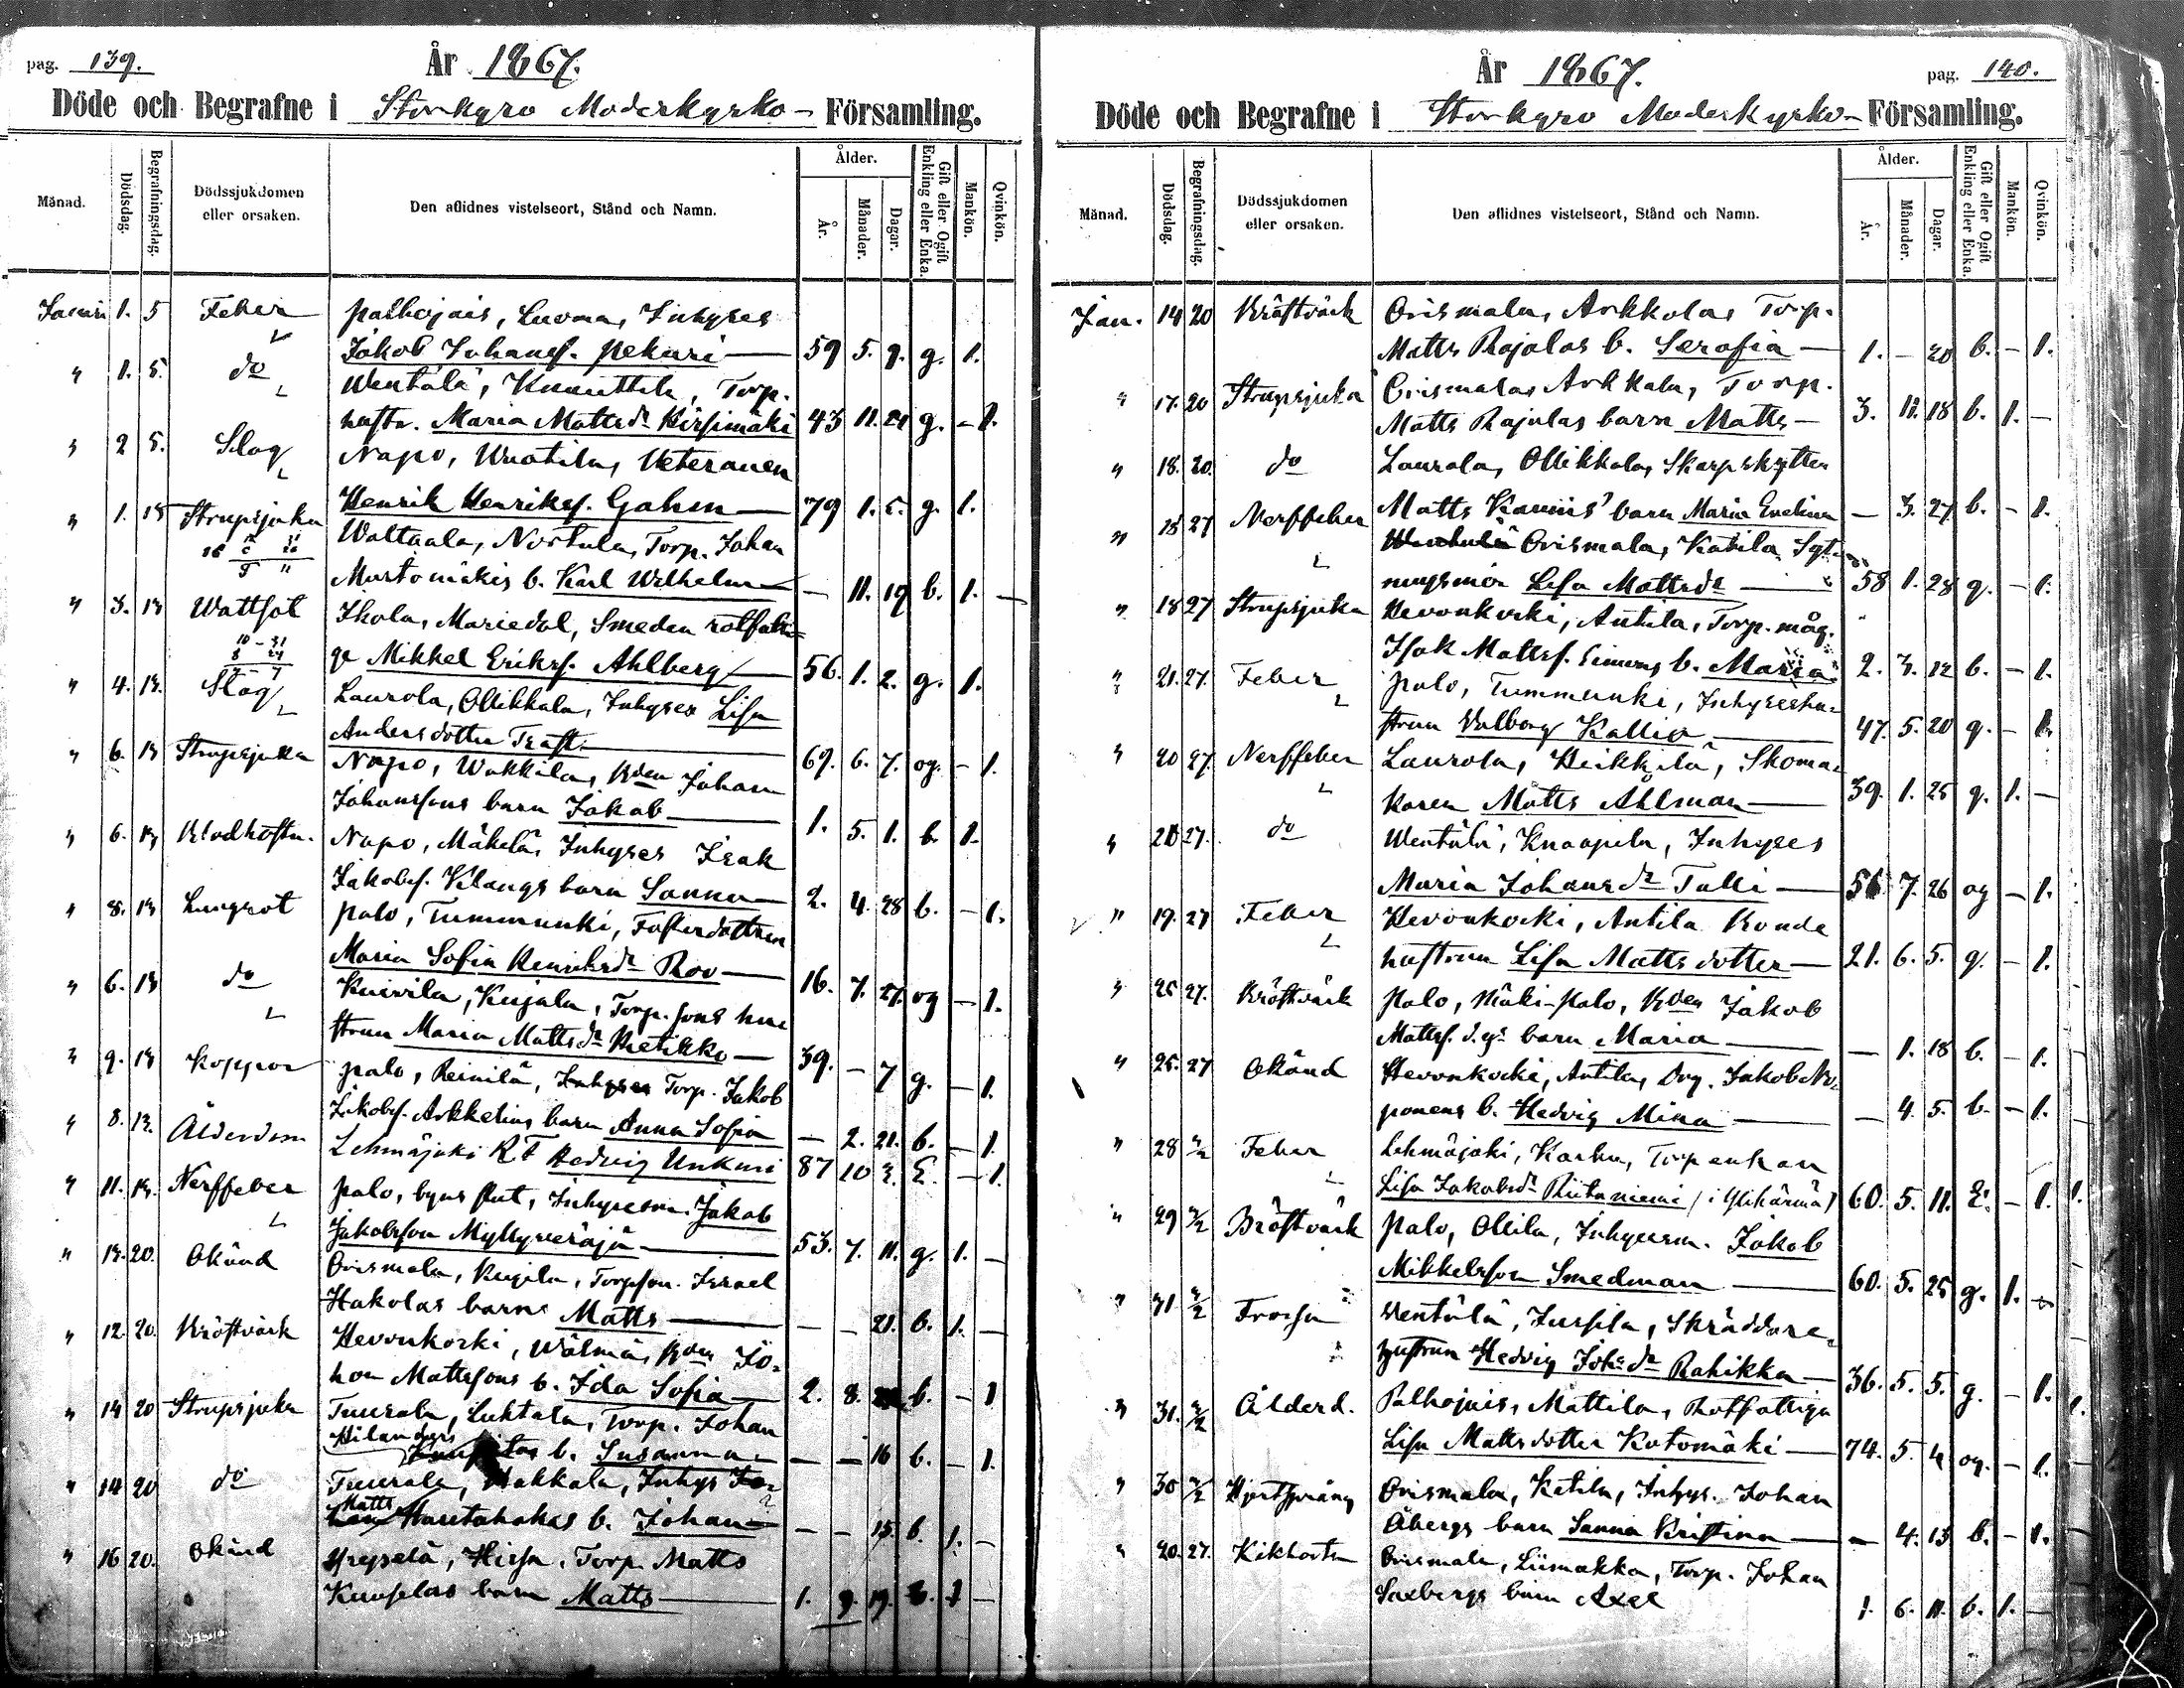 pag. 139.
År 1867.
Döde och Begrafne i Storkyro Moderkyrko- Församling.
Månad.
Dödsdag.
Begrafningsdag.
Dödssjukdomen eller orsaken.
Den aflidnes vistelseort, Stånd och Namn.
Ålder.
År.
Månader.
Dagar.
Gift eller Ogift Enkling eller Enka.
Mankön.
Qvinkön.
Januari 1. 5 Feber Palhojais, Luoma, Inhyses
Jakob Johansf. Pekuri — 59 5. 9. g. 1.
" 1. 5. do Wentälä, Knuuttila, Torp.
hustr. Maria Mattsdr Kirsimäki 43 11. 21 g. - 1.
" 2 5. Slag Napo, Wuotila, Veteranen
Henrik Henriksf. Gahm — 79 1. 5. g. 1.
" 1. 13 Strupsjuka Waltaala, Nortula, Torp. Johan
Mustomäkis b. Karl Wilhelm — — 11. 19 b. 1. —
" 3. 13 Wattsot Ikola, Mariedal, Smeden rotfatti=
ge Mikkel Eriksf. Ahlberg — 56. 1. 2. g. 1.
" 4. 13. Slag Laurola, Ollikkala, Inhyses Lisa
Andersdotter Träft. — 69. 6. 7. og. - 1.
" 6. 13 Strupsjuka Napo, Wakkila, Bden Johan
Johanssons barn Jakob — 1. 5. 1. b. 1.
" 6. 13 Klodhosta. Napo, Mäkelä, Inhyses Isak
Jakobsf. Klangs barn Sanna — 2. 4. 28 b. - 1.
" 8. 13 Lungsot Palo, Tummunki, Fosterdottren
Maria Sofia Henriksdr Roo — 16. 7. 27. og - 1.
" 6. 13 do Kuivila, Kujala, Torp. sons hu=
strun Maria Mattsdr Ketikko — 39. — 7 g. - 1.
" 9. 13 Koppor Palo, Reinilä, Inhyses Torp. Jakob
Jakobsf. Arkkelins barn Anna Sofia — 2. 21. b. - 1.
" 8. 13. Ålderdom Lehmäjoki R F Hedvig Unkuri 87 10 3. E. - 1.
" 11. 13. Nerffeber Palo, byns slut, Inhysesm. Jakob
Jakobsson Myllyneräjä — 53. 7. 11. g. 1. —
" 13. 20. Okänd Orismala, Kujila, Torpson. Israel
Hakolas barn Matts — — — 21. b. 1. —
" 12. 20. Kröftvärk Hevonkoski, Wälimä, Bden Jo=
han Mattssons b. Ida Sofia — 2. 8. b. - 1
" 14 20 Strupsjuka Tuurala, Luhtala, Torp. Johan
Hilanders b. Susanna — — 16 b. - 1.
" 14 20 do Tuurala, Hakkala, Inhys Jo=
Matts
han Hautahakas b. Johan — — 15. b. 1. —
" 16 20. Okänd Yrysela, Hirsa, Torp. Matts
Kuuselas barn Matts — 1. 9. 19. b. 1 —
pag. 140.
År 1867.
Döde och Begrafne i Storkyro Moderkyrko- Församling.
Månad.
Dödsdag.
Begrafningsdag.
Dödssjukdomen eller orsaken.
Den aflidnes vistelseort, Stånd och Namn.
Ålder.
År.
Månader.
Dagar.
Gift eller Ogift Enkling eller Enka.
Mankön.
Qvinkön.
Jan. 14 20 Kröftvärk Orismala, Arkkolas Torp.
Matts Rajalas b. Serafia — 1. - 20 b. - 1.
" 17. 20 Strupsjuka Orismala, Arkkala, Torp.
Matts Rajalas barn Matts — 3. 11. 18 b. 1. —
" 18. 20. do Laurola, Ollikkala, Skarpskytten
Matts Kaunis' barn Maria Evelina — 3. 27. b. - 1.
" 18 27 Nerffeber Wentälä Orismala, Katila, Syt=
ningsmor Lisa Mattsdr — 58 1. 28 g. - 1.
" 18 27 Strupsjuka Hevonkoski, Antila, Torp. måg.
Isak Mattsf. Simons b. Maria 2. 3. 12 b. - 1.
" 21. 27. Feber Palo, Tummunki, Inhyseshu=
strun Valborg Kallio — 47. 5. 20 g. - 1.
" 20 27. Nerffeber Laurola, Heikkilä, Skoma=
karen Matts Ahlman — 39. 1. 25 g. 1. —
" 20 27. do Wentälä, Knaapila, Inhyses
Maria Johansdr Talli — 56 7. 26 og - 1.
" 19. 27 Feber Hevonkoski, Antila Bonde
hustrun Lisa Mattsdotter — 21. 6. 5. g. - 1.
" 25 27. Kröftvärk Palo, Mäki-Palo, Bden Jakob
Mattsf. d.y:s barn Maria — — 1. 18 b. - 1.
" 25. 27 Okänd Hevonkoski, Antila, Drg. Jakob No=
ponens b. Hedvig Mina — — 4. 5. b. - 1.
" 28 3/2 Feber Lehmäjoki, Karhu, Torpenkan
Lisa Jakobsdr Riitaniemi (i Ylikärmä) 60. 5. 11. E. - 1.
" 29 3/2 Bröstvärk Palo, Ollila, Inhysesm. Jakob
Mikkelsson Smedman — 60. 5. 25 g. 1. —
" 31 3/2 Frossa Wentälä, Jussila, Skräddare=
hustrun Hedvig Johsdr Rahikka — 36. 5. 5. g. - 1.
" 31. 3/2 Ålderd. Palhojais, Mattila, Rotfattiga
Lisa Mattsdotter Kotomäki — 74. 5. 4 og. - 1.
" 30 3/2 Hjertspräng Orismala, Katila, Inhys. Johan
Åbergs barn Sanna Kristina — — 4. 13 b. - 1.
" 20. 27. Kikhosta Orismala, Liimakka, Torp. Johan
Saxbergs barn Axel 1. 6. 11. b. 1. —